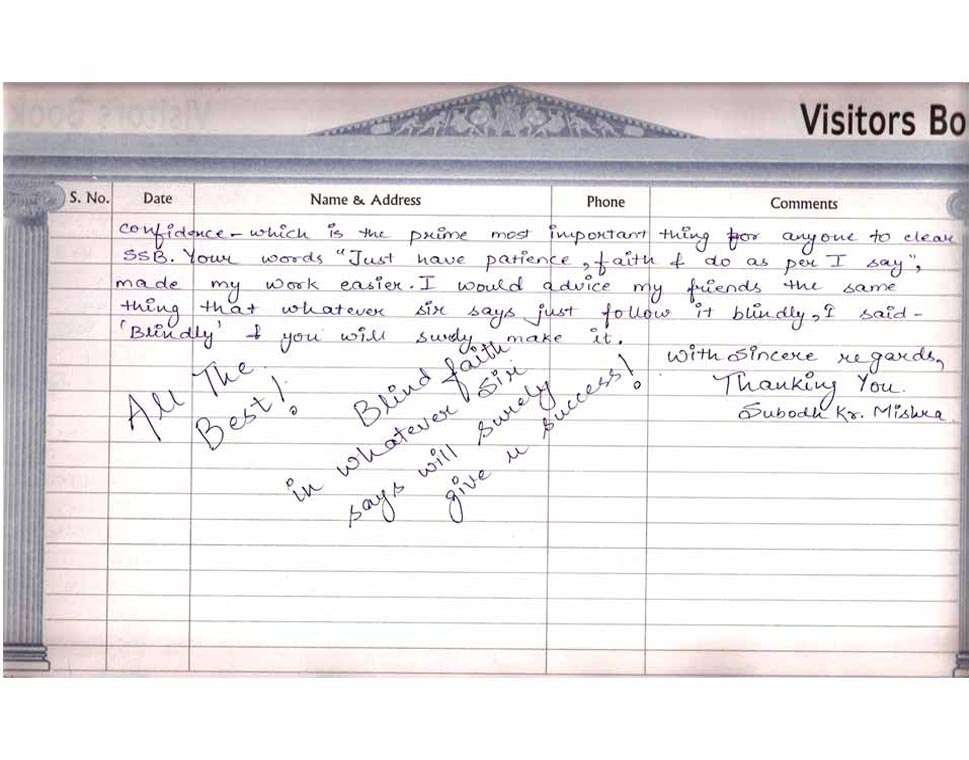 Visitors Bo
S. No. Date Name & Address Phone Comments
confidence - which is the prime most important thing for anyone to clear
SSB. Your words "Just have patience, faith & do as per I say",
made my work easier. I would advice my friends the same
thing that whatever sir says just follow it blindly, I said -
'Blindly' & you will surely make it.
with sincere regards,
Thanking You.
Subodh Kr. Mishra
All The
Best!
Blind faith
in whatever Sir
says will surely
give u success!